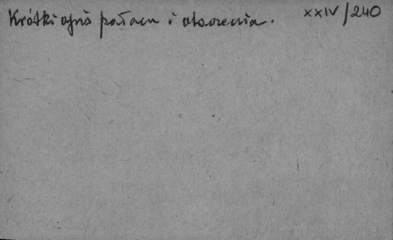 Krótki opis pałacu i otoczenia. XXIV/240